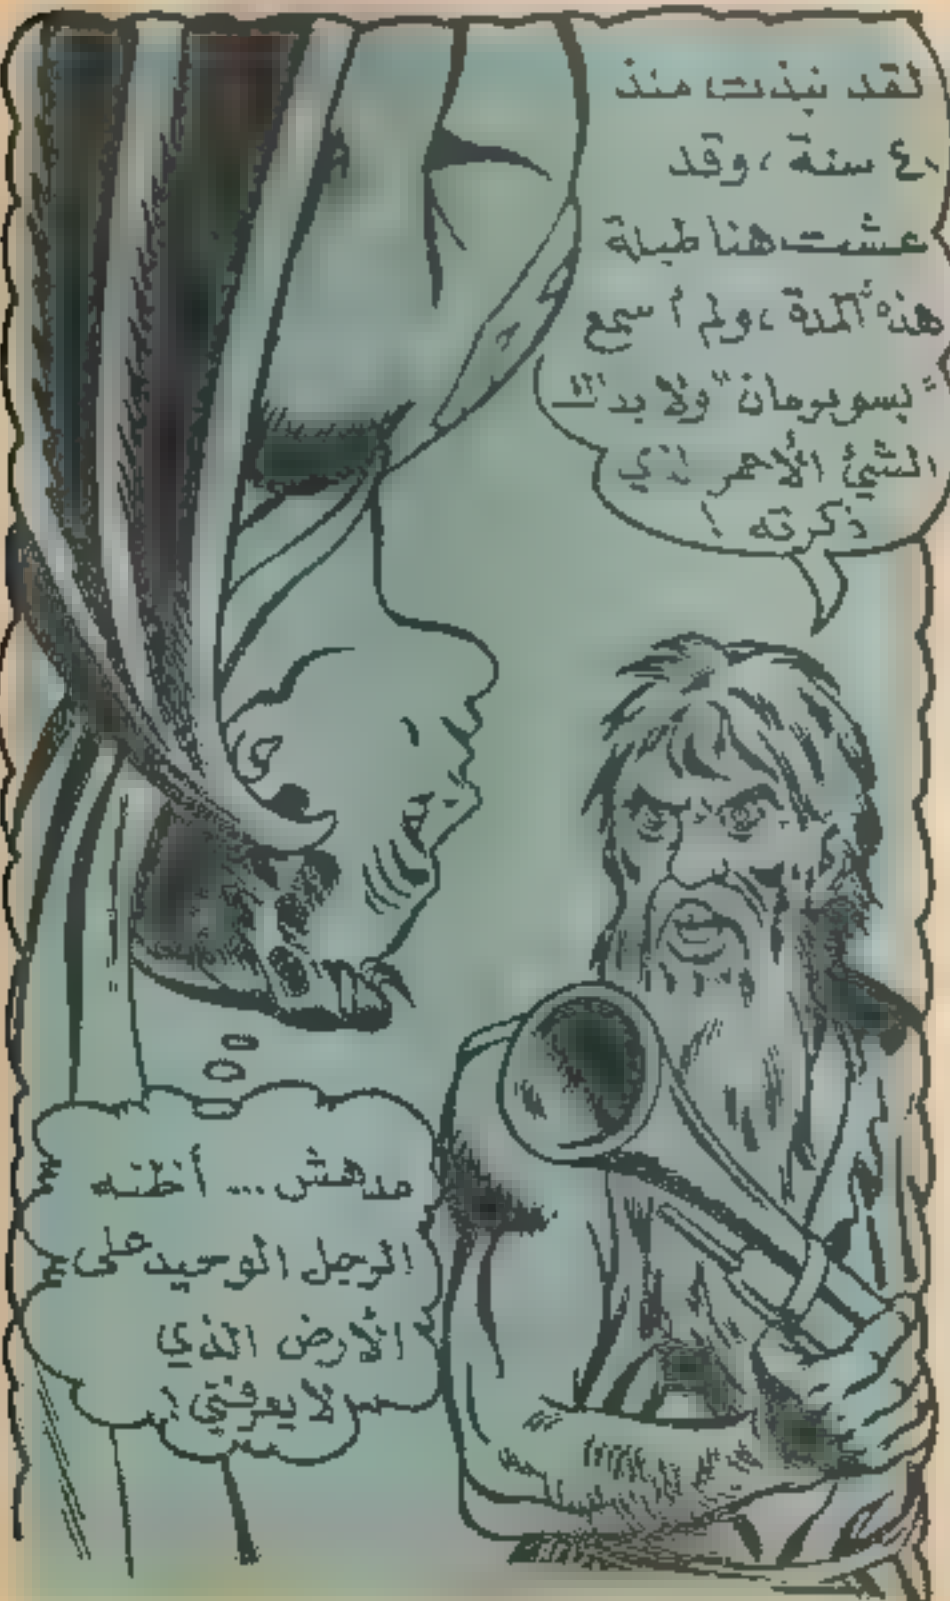 لقد نبذت منذ
٤٠ سنة ، وقد
عشت هنا طيلة
هذه المدة ، ولم أسمع
"بسوبرمان" ولا بذلك
الشيئ الأحمر الذي
ذكرته !
مدهش ... أظنه
الرجل الوحيد على
الأرض الذي
لا يعرفني !